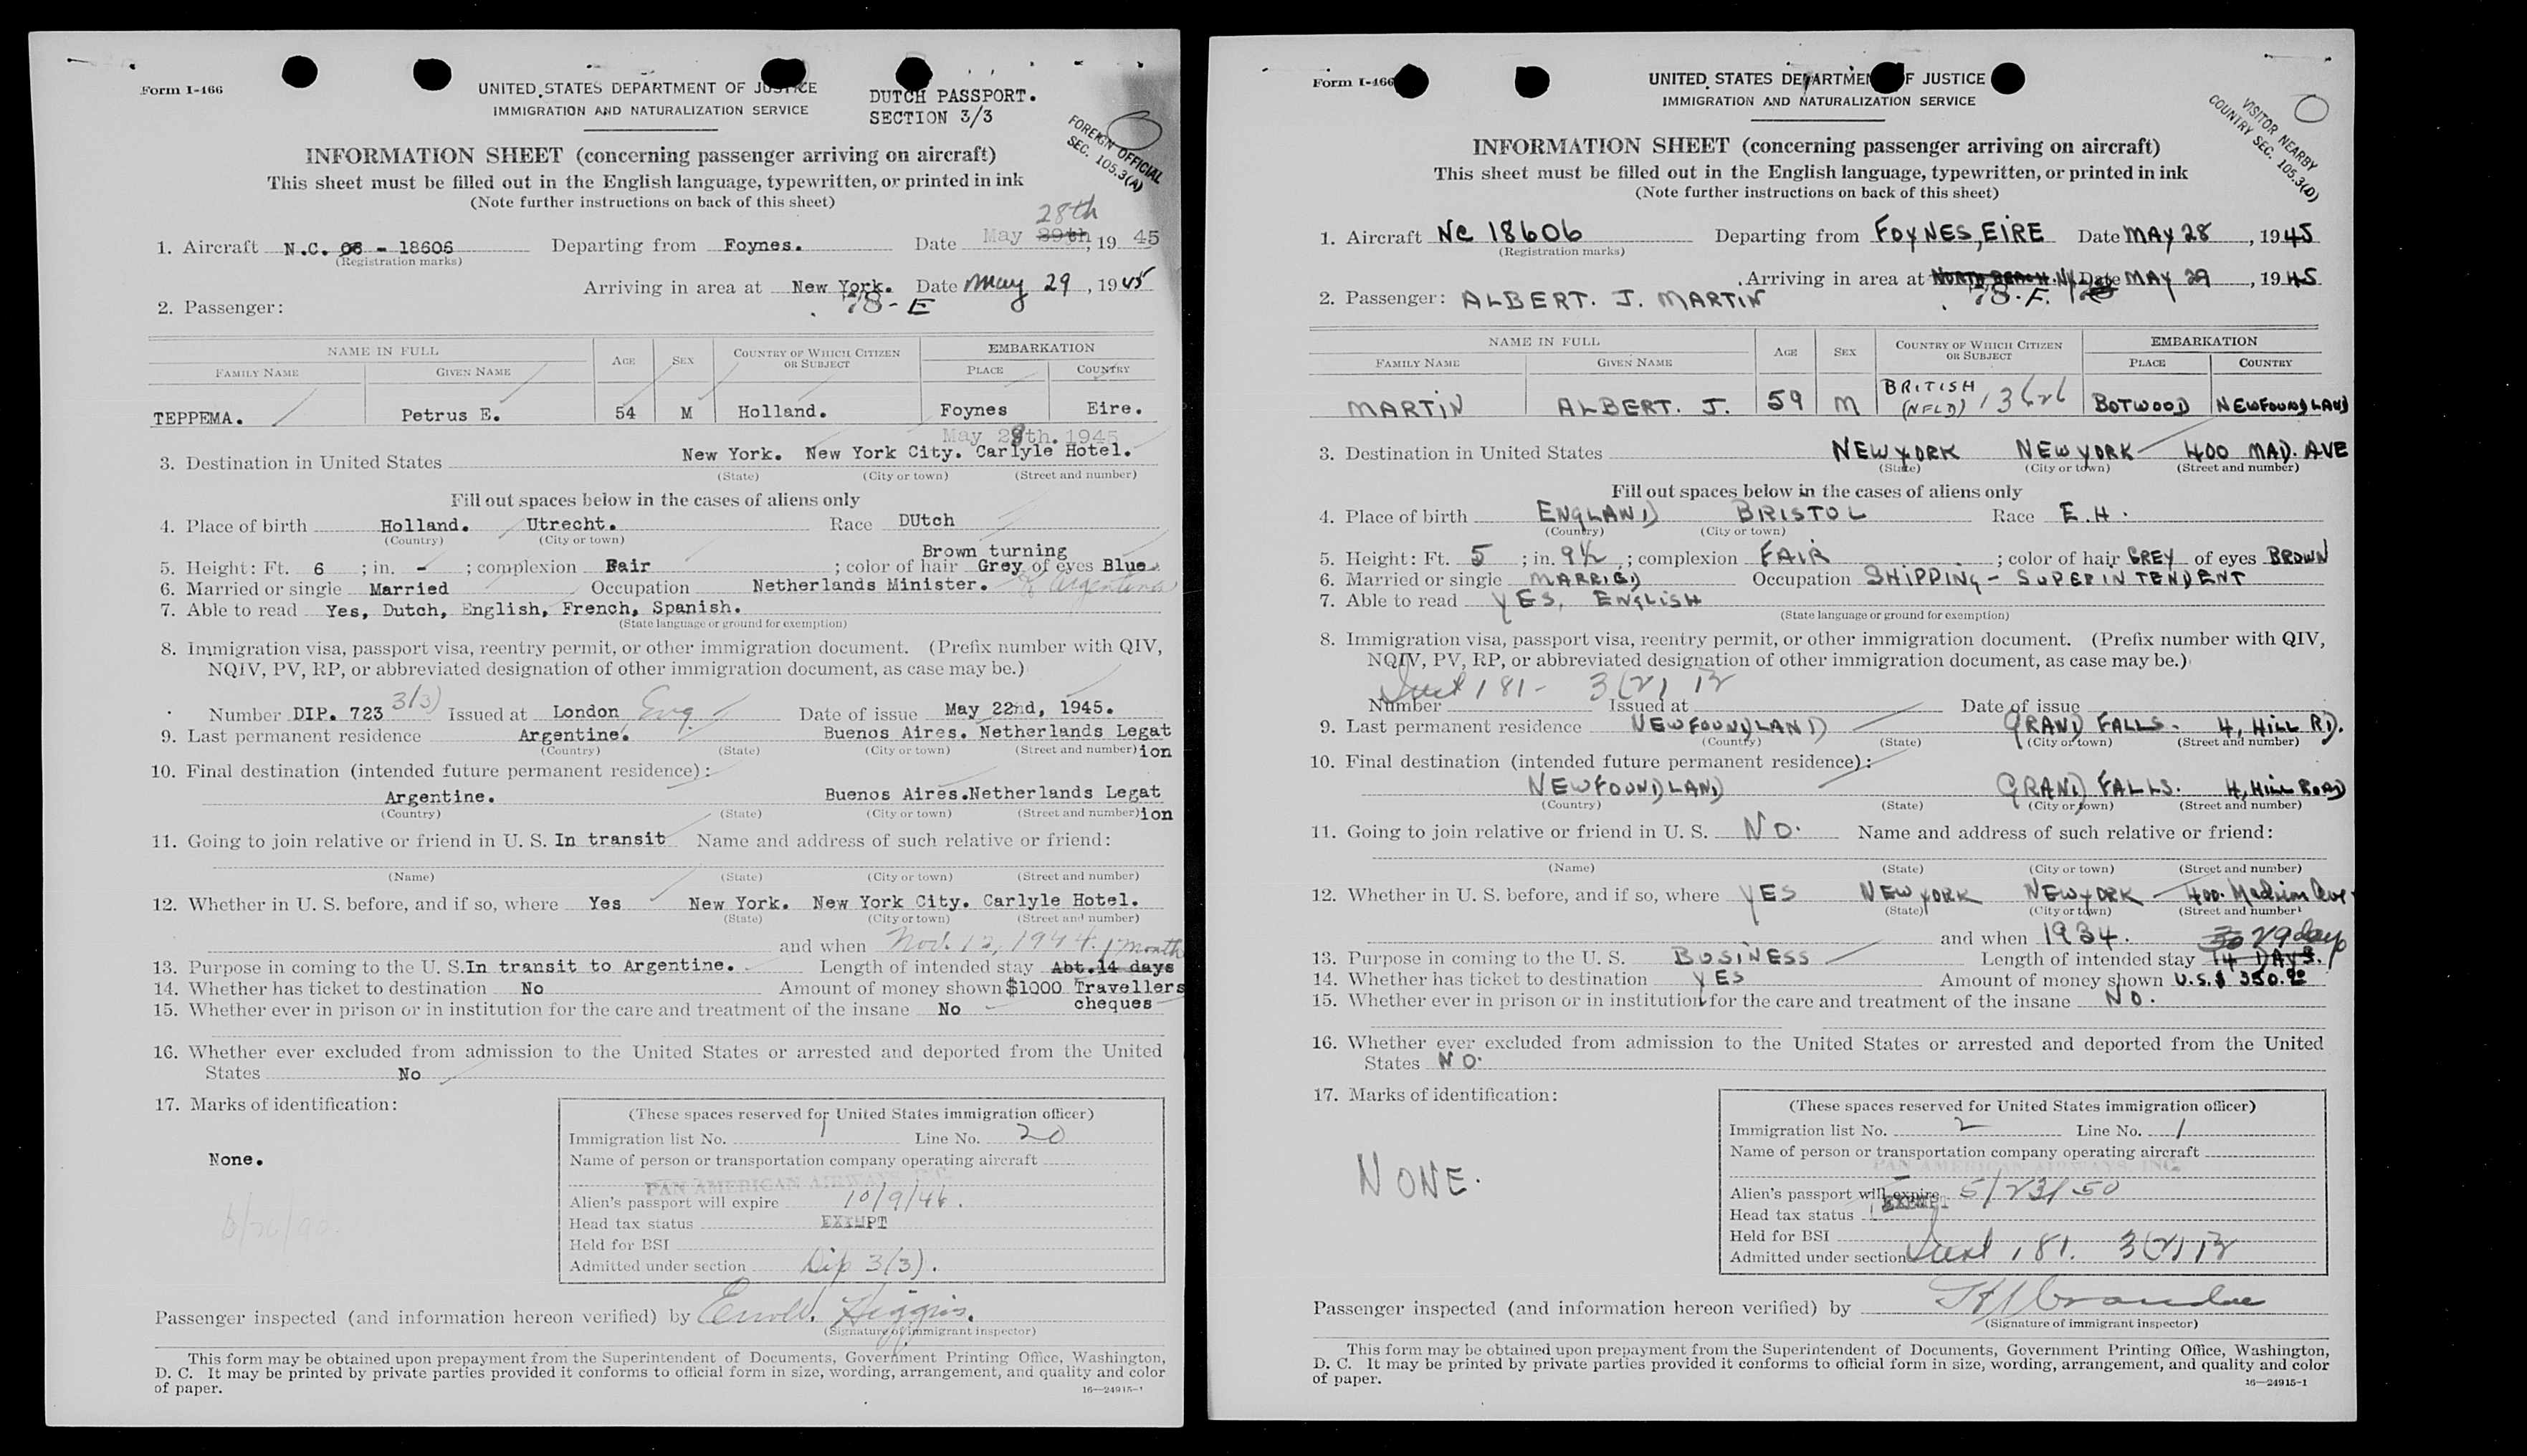 Form I-466
UNITED STATES DEPARTMENT OF JUSTICE
IMMIGRATION AND NATURALIZATION SERVICE
DUTCH PASSPORT.
SECTION 3/3
FOREIGN OFFICIAL
SEC. 105.3(A)
INFORMATION SHEET (concerning passenger arriving on aircraft)
This sheet must be filled out in the English language, typewritten, or printed in ink
(Note further instructions on back of this sheet)
28th
1. Aircraft N.C. 08 - 18606 Departing from Foynes. Date May 29th, 19 45
(Registration marks)
Arriving in area at New York. Date May 29, 1945
78-E
2. Passenger:
NAME IN FULL AGE SEX COUNTRY OF WHICH CITIZEN OR SUBJECT EMBARKATION
FAMILY NAME GIVEN NAME PLACE COUNTRY
TEPPEMA. Petrus E. 54 M Holland. Foynes Eire.
May 28th. 1945
3. Destination in United States New York. New York City. Carlyle Hotel.
(State) (City or town) (Street and number)
Fill out spaces below in the cases of aliens only
4. Place of birth Holland. Utrecht. Race DUtch
(Country) (City or town)
Brown turning
5. Height: Ft. 6 ; in. - ; complexion Fair ; color of hair Grey of eyes Blue
6. Married or single Married Occupation Netherlands Minister. to Argentina
7. Able to read Yes, Dutch, English, French, Spanish.
(State language or ground for exemption)
8. Immigration visa, passport visa, reentry permit, or other immigration document. (Prefix number with QIV,
NQIV, PV, RP, or abbreviated designation of other immigration document, as case may be.)
3/3)
Number DIP. 723 Issued at London Eng. Date of issue May 22nd, 1945.
9. Last permanent residence Argentine. Buenos Aires. Netherlands Legat
(Country) (State) (City or town) (Street and number) ion
10. Final destination (intended future permanent residence):
Argentine. Buenos Aires.Netherlands Legat
(Country) (State) (City or town) (Street and number) ion
11. Going to join relative or friend in U. S. In transit Name and address of such relative or friend:
(Name) (State) (City or town) (Street and number)
12. Whether in U. S. before, and if so, where Yes New York. New York City. Carlyle Hotel.
(State) (City or town) (Street and number)
and when Nov. 12, 1944. 1 month
13. Purpose in coming to the U. S. In transit to Argentine. Length of intended stay Abt.14 days
14. Whether has ticket to destination No Amount of money shown $1000 Travellers
cheques
15. Whether ever in prison or in institution for the care and treatment of the insane No
16. Whether ever excluded from admission to the United States or arrested and deported from the United
States No
17. Marks of identification:
None.
(These spaces reserved for United States immigration officer)
Immigration list No. 1 Line No. 20
Name of person or transportation company operating aircraft
PAN AMERICAN AIRWAYS
Alien's passport will expire 10/9/46.
Head tax status EXEMPT
Held for BSI
Admitted under section Dip 3(3).
Passenger inspected (and information hereon verified) by Higgins.
(Signature of immigrant inspector)
This form may be obtained upon prepayment from the Superintendent of Documents, Government Printing Office, Washington,
D. C. It may be printed by private parties provided it conforms to official form in size, wording, arrangement, and quality and color
of paper.
16—24915-1
Form I-466
UNITED STATES DEPARTMENT OF JUSTICE
IMMIGRATION AND NATURALIZATION SERVICE
VISITOR NEARBY
COUNTRY SEC. 105.3(D)
INFORMATION SHEET (concerning passenger arriving on aircraft)
This sheet must be filled out in the English language, typewritten, or printed in ink
(Note further instructions on back of this sheet)
1. Aircraft NC 18606 Departing from FOYNES, EIRE Date MAY 28, 1945
(Registration marks)
Arriving in area at NORTH BEACH. N.Y. Date MAY 29, 1945
78. F.
2. Passenger: ALBERT. J. MARTIN
NAME IN FULL AGE SEX COUNTRY OF WHICH CITIZEN OR SUBJECT EMBARKATION
FAMILY NAME GIVEN NAME PLACE COUNTRY
MARTIN ALBERT. J. 59 M BRITISH (NFLD) BOTWOOD NEWFOUNDLAND
3. Destination in United States NEW YORK NEW YORK 400 MAD. AVE
(State) (City or town) (Street and number)
Fill out spaces below in the cases of aliens only
4. Place of birth ENGLAND BRISTOL Race E.H.
(Country) (City or town)
5. Height: Ft. 5 ; in. 9½ ; complexion FAIR ; color of hair GREY of eyes BROWN
6. Married or single MARRIED Occupation SHIPPING - SUPERINTENDENT
7. Able to read YES, ENGLISH
(State language or ground for exemption)
8. Immigration visa, passport visa, reentry permit, or other immigration document. (Prefix number with QIV,
NQIV, PV, RP, or abbreviated designation of other immigration document, as case may be.)
181- 3(2)
Number Issued at Date of issue
9. Last permanent residence NEWFOUNDLAND GRAND FALLS. 4, HILL RD.
(Country) (State) (City or town) (Street and number)
10. Final destination (intended future permanent residence):
NEWFOUNDLAND GRAND FALLS. 4, HILL ROAD
(Country) (State) (City or town) (Street and number)
11. Going to join relative or friend in U. S. NO. Name and address of such relative or friend:
(Name) (State) (City or town) (Street and number)
12. Whether in U. S. before, and if so, where YES NEW YORK NEW YORK 400. Madison Ave
(State) (City or town) (Street and number)
and when 1934. 30 29 days
13. Purpose in coming to the U. S. BUSINESS Length of intended stay 14 DAYS.
14. Whether has ticket to destination YES Amount of money shown U.S. $ 350.00
15. Whether ever in prison or in institution for the care and treatment of the insane NO.
16. Whether ever excluded from admission to the United States or arrested and deported from the United
States NO.
17. Marks of identification:
NONE.
(These spaces reserved for United States immigration officer)
Immigration list No. 2 Line No. 1
Name of person or transportation company operating aircraft
PAN AMERICAN AIRWAYS, INC.
Alien's passport will expire 5/23/50
Head tax status EXEMPT
Held for BSI
Admitted under section 181. 3(2)
Passenger inspected (and information hereon verified) by
(Signature of immigrant inspector)
This form may be obtained upon prepayment from the Superintendent of Documents, Government Printing Office, Washington,
D. C. It may be printed by private parties provided it conforms to official form in size, wording, arrangement, and quality and color
of paper.
16—24915-1